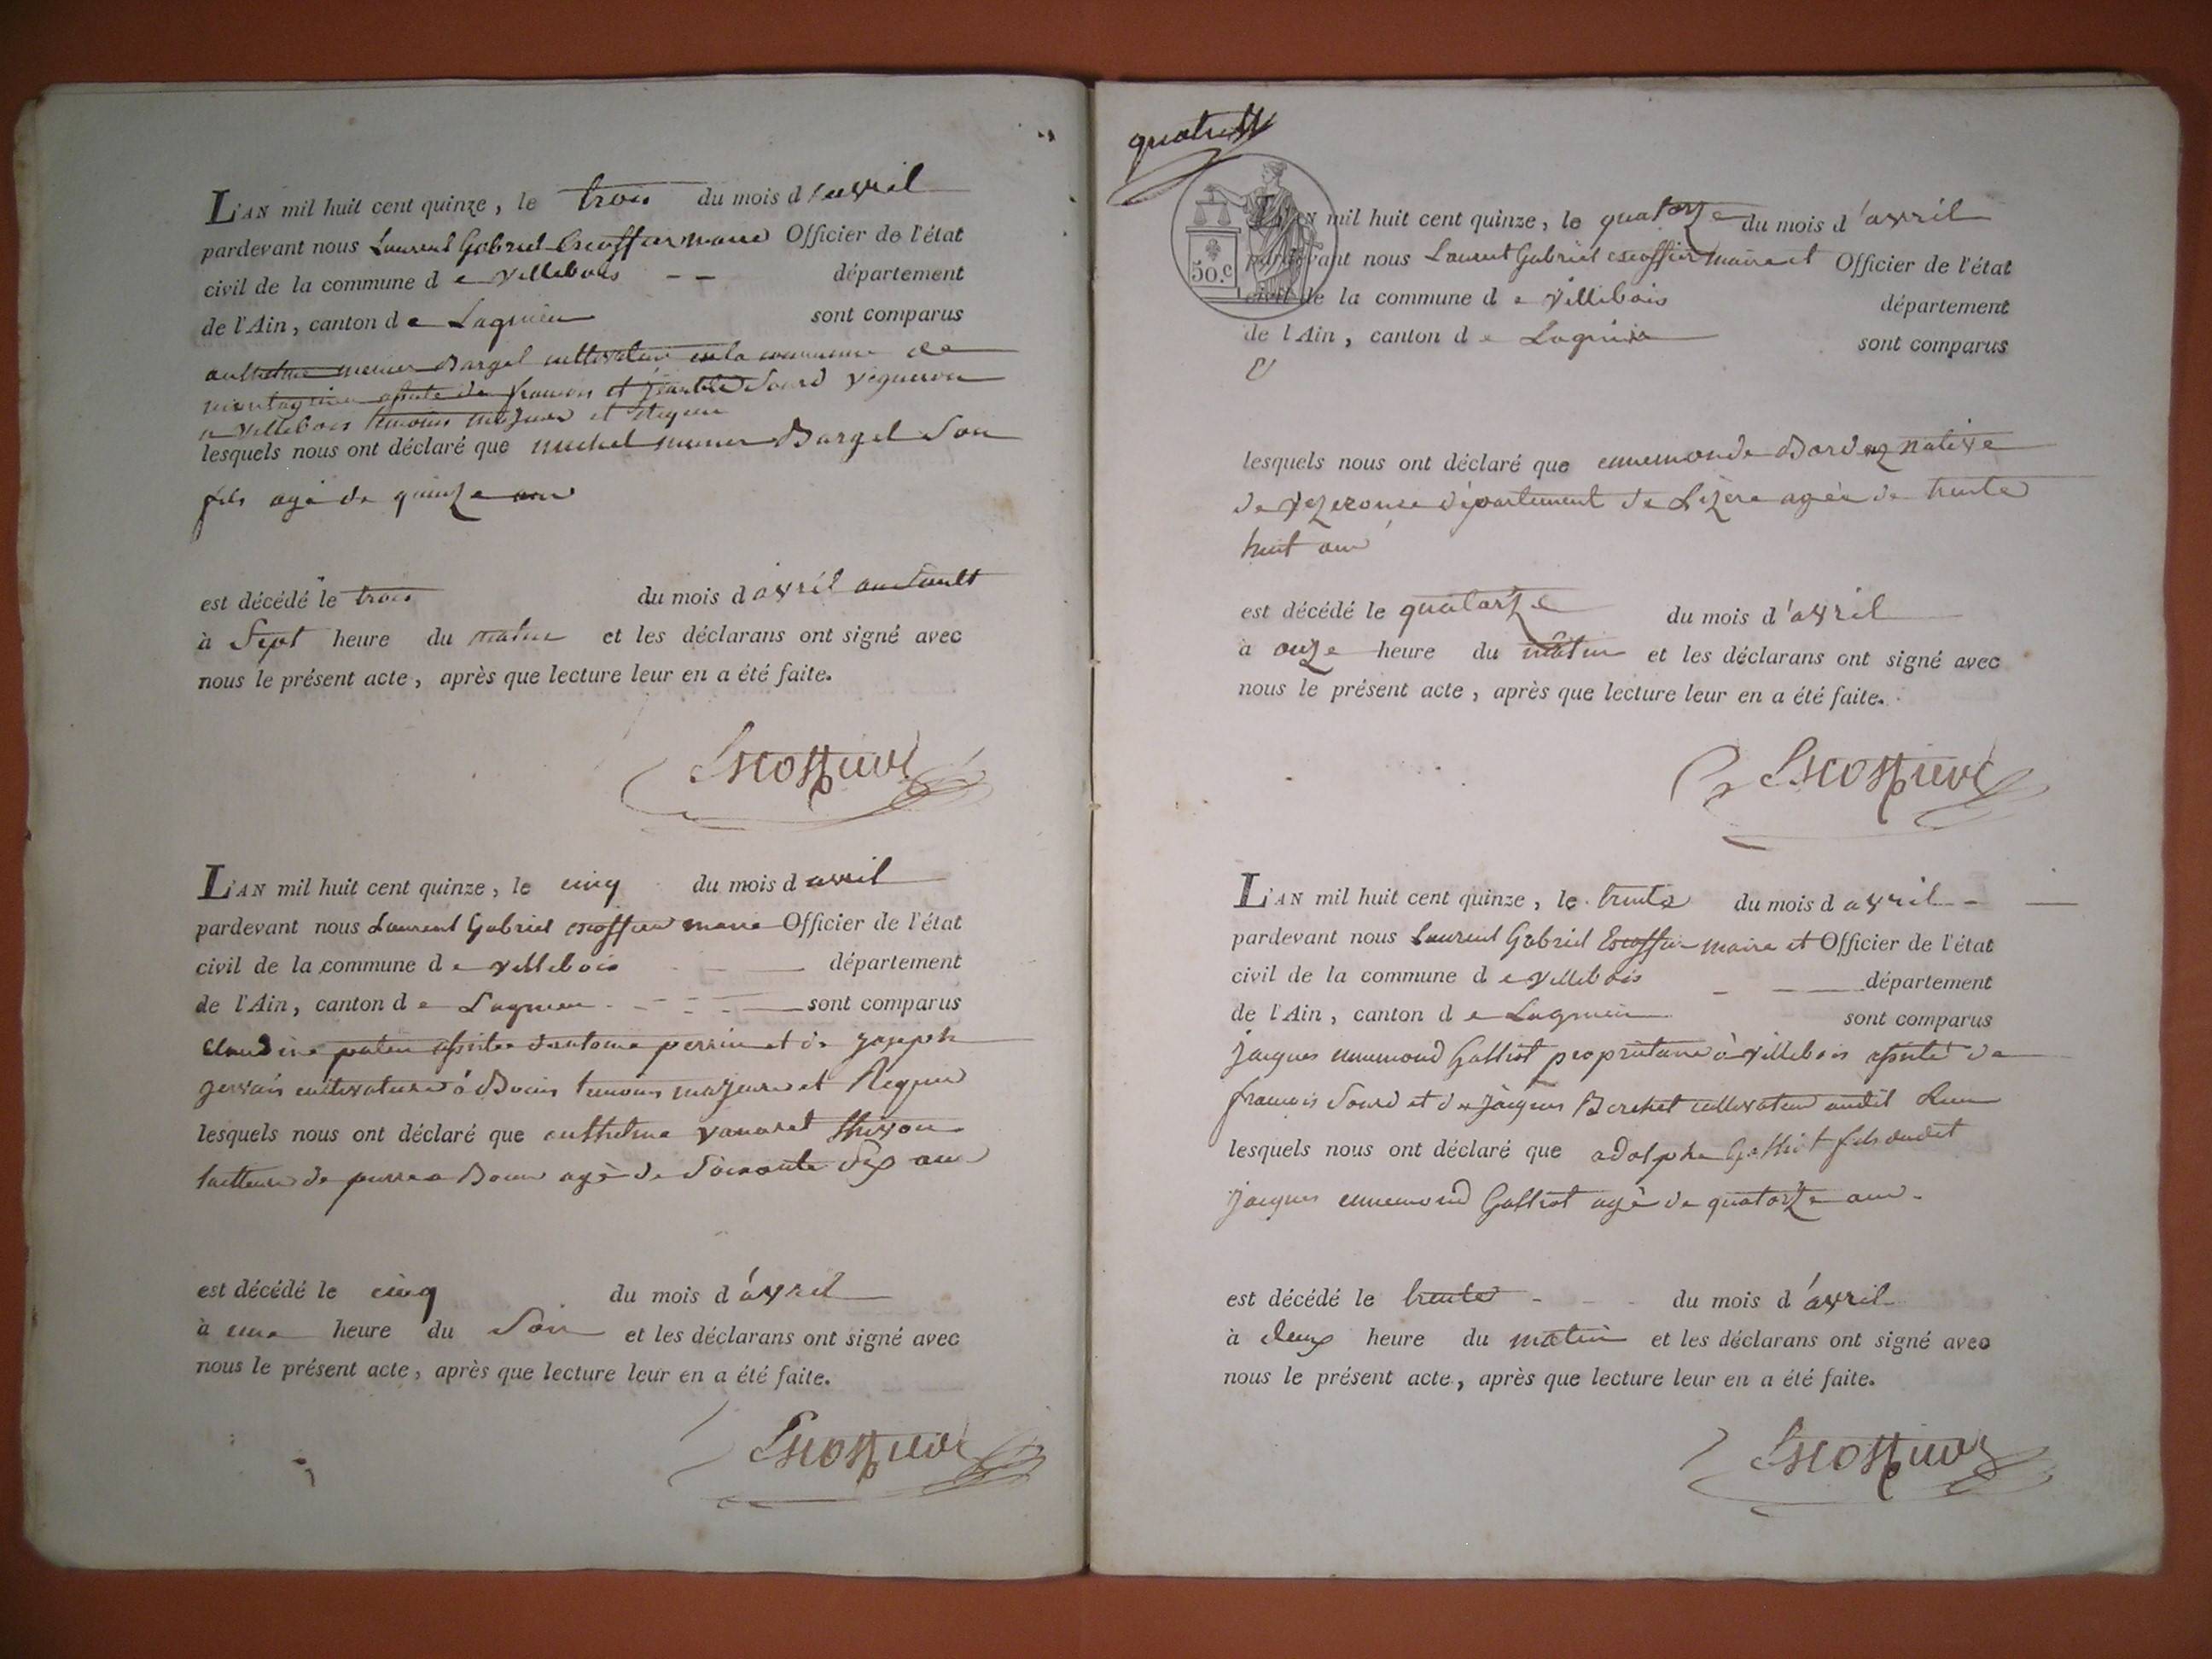 L'AN mil huit cent quinze, le trois du mois d'avril
pardevant nous Laurent Gabriel Escoffier maire Officier de l'état
civil de la commune de Villebois département
de l'Ain, canton de Lagnieu sont comparus
anthelme meunier Bargel cultivateur en la commune de
assisté de françois et Sourd vigneron
a Villebois temoins majeurs et requis
lesquels nous ont déclaré que michel Bargel Son
fils agé de quinze ans
est décédé le trois du mois d avril au Sault
à Sept heure du matin et les déclarans ont signé avec
nous le présent acte, après que lecture leur en a été faite.
Escoffier
L'AN mil huit cent quinze, le cinq du mois d avril
pardevant nous Laurent Gabriel escoffier maire Officier de l'état
civil de la commune de villebois département
de l'Ain, canton de Lagnieu sont comparus
Claudine assistée d'antoine perrin et de joseph
gervais cultivateurs à Bouis temoins majeurs et Requis
lesquels nous ont déclaré que anthelme vanaret
tailleur de pierre a Bouis agé de Soixante Six ans
est décédé le cinq du mois d'avril
à une heure du Soir et les déclarans ont signé avec
nous le présent acte, après que lecture leur en a été faite.
Escoffier
quatre
50.c
L'AN mil huit cent quinze, le quatorze du mois d'avril
pardevant nous Laurent Gabriel escoffier maire et Officier de l'état
civil de la commune de Villebois département
de l'Ain, canton de Lagnieu sont comparus
lesquels nous ont déclaré que ennemonde native
de vezeronce département de Lizere agée de trente
huit ans
est décédé le quatorze du mois d'avril
à onze heure du matin et les déclarans ont signé avec
nous le présent acte, après que lecture leur en a été faite.
Escoffier
L'AN mil huit cent quinze, le trente du mois d avril
pardevant nous Laurent Gabriel Escoffier maire et Officier de l'état
civil de la commune de villebois département
de l'Ain, canton de Lagnieu sont comparus
jacques ennemond Galliot proprietaire à villebois assisté de
francois Sourd et de jacques Berchet cultivateur audit Lieu
lesquels nous ont déclaré que adolphe Galliot fils dudit
jacques ennemond Galliot agé de quatorze ans
est décédé le trente du mois d'avril
à deux heure du matin et les déclarans ont signé avec
nous le présent acte, après que lecture leur en a été faite.
Escoffier